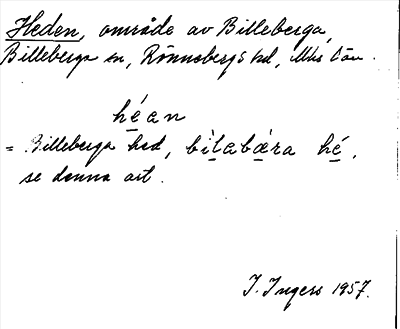 Heden, område av Billeberga,
Billeberga sn, Rönnebergs hd, Mhs län.
héan
= Billeberga hed, bìlabæra hé,
se denna art.
I. Ingers 1957.